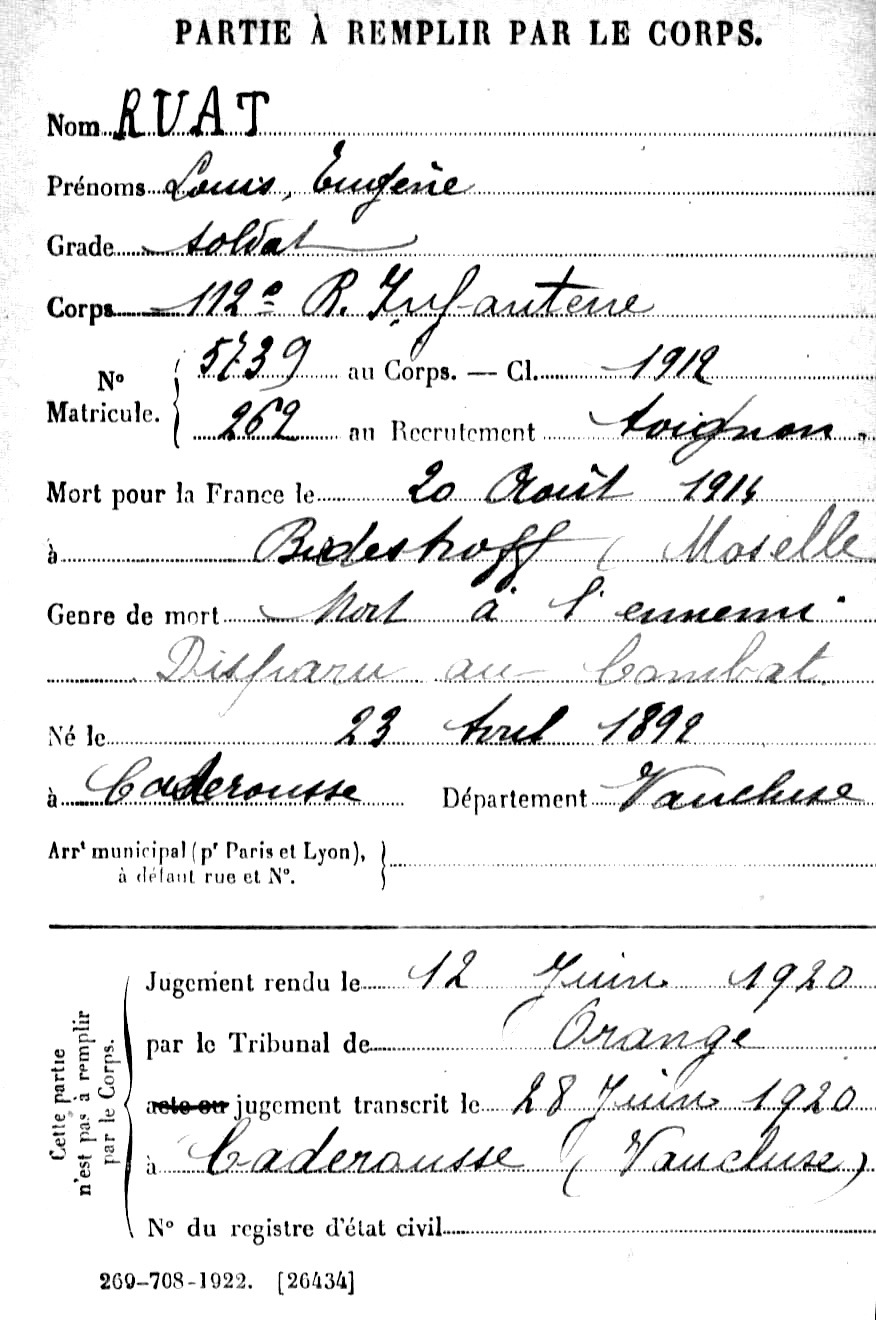 PARTIE À REMPLIR PAR LE CORPS.
Nom RUAT
Prénoms Louis, Eugène
Grade soldat
Corps 112e R. Infanterie
No Matricule. 5739 au Corps. — Cl. 1912
262 au Recrutement Avignon
Mort pour la France le 20 Août 1914
à Bidestroff (Moselle
Genre de mort Mort à l'ennemi
Disparu au Combat.
Né le 23 Avril 1892
à Caderousse Département Vaucluse
Arrt municipal (pr Paris et Lyon),
à défaut rue et No.
Cette partie n'est pas à remplir par le Corps.
Jugement rendu le 12 Juin 1920
par le Tribunal de Orange
acte ou jugement transcrit le 28 Juin 1920
à Caderousse (Vaucluse)
No du registre d'état civil
269-708-1922. [26434]